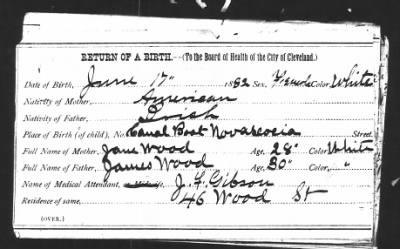 RETURN OF A BIRTH.—(To the Board of Health of the City of Cleveland.)
Date of Birth, June 17" 1882 Sex, Female Color White
Nativity of Mother, American
Nativity of Father, Irish
Place of Birth (of child), No. Canal Boat Novascosia Street.
Full Name of Mother, Jane Wood Age, 28" Color White
Full Name of Father, James Wood Age, 30" Color "
Name of Medical Attendant, or Midwife, J. F. Gibson
Residence of same, 46 Wood St
(OVER.)